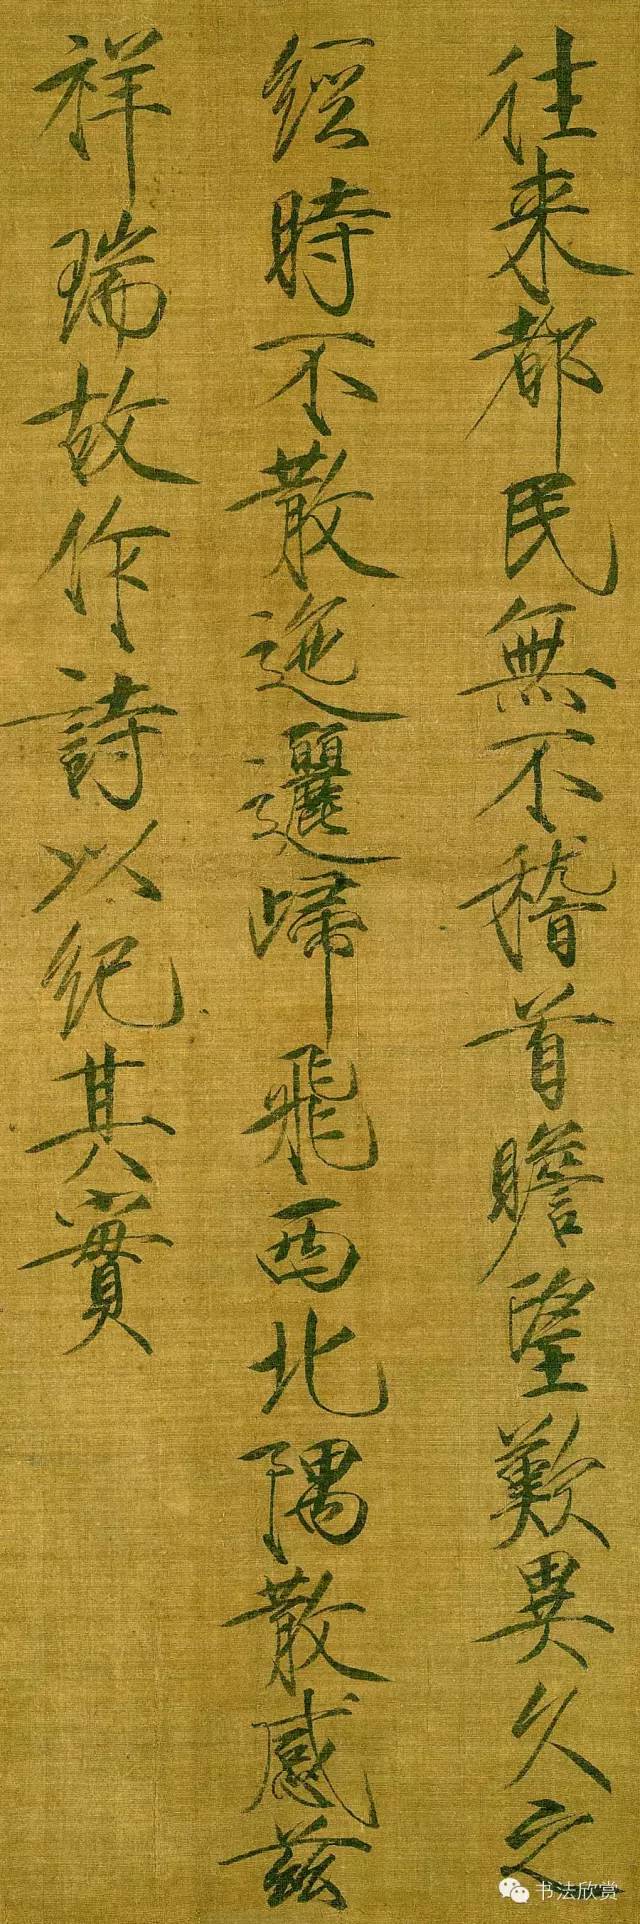 往来都民無不稽首瞻望歎異久之
經時不散迤邐歸飛西北隅散感茲
祥瑞故作詩以紀其實
书法欣赏